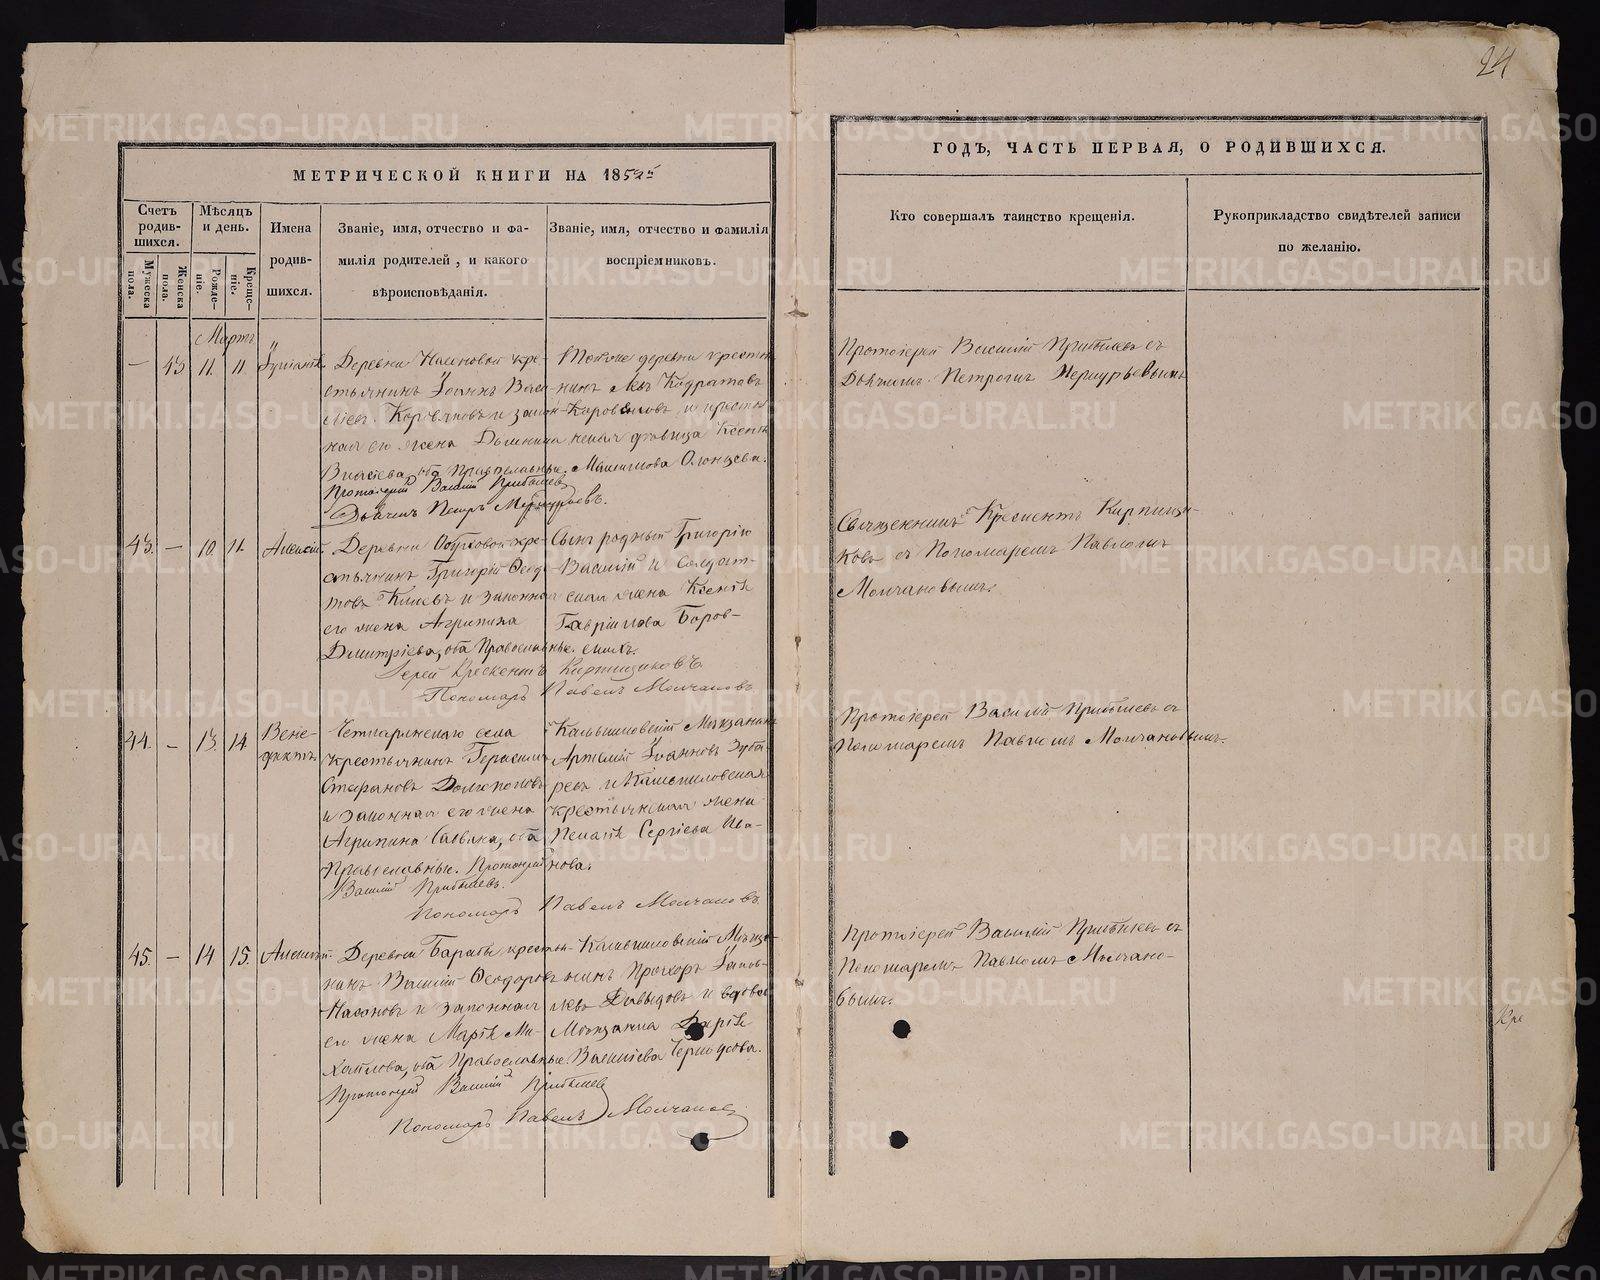 24
МЕТРИЧЕСКОЙ КНИГИ НА 185
ГОДЪ, ЧАСТЬ ПЕРВАЯ, О РОДИВШИХСЯ.
Счетъ родив-шихся.
Мужеска пола.
Женска пола.
Мѣсяцъ и день.
Рожде-ніе.
Креще-ніе.
Имена
родив-
шихся.
Званіе, имя, отчество и фа-
милія родителей, и какого
вѣроисповѣданія.
Званіе, имя, отчество и фамилія
воспріемниковъ.
Кто совершалъ таинство крещенія.
Рукоприкладство свидѣтелей записи
по желанію.
Мартъ
— 43 11. 11.
Деревни кре-
стьянинъ Іоаннъ Васи-
и закон-
ная его жена
Власіева, оба Православные.
Протоіерей Василій Прибылевъ
Діаконъ Петръ Меркурьевъ.
Тойже деревни крестья-
нинъ
и крестья
дѣвица
Протоіерей Василій Прибылевъ съ
Діакономъ Петромъ Меркурьевымъ
43. — 10. 11. Алексій.
Деревни кре-
стьянинъ Григорій Ѳеодо-
товъ и законная
его жена Агрипина
Дмитріева, оба Православные.
Іерей Крескентъ Кирпищиковъ.
Пономарь Павелъ Молчановъ
Сынъ родный Григорію
Василій и солдат-
ская жена Ксенія
Гавріилова Боров-
Священникъ Крескентъ Кирпищи-
ковъ съ Пономаремъ Павломъ
Молчановымъ.
44. — 13. 14. Вене-
диктъ
села
крестьянинъ Герасимъ
Стефановъ Долгополовъ
и законная его жена
Агрипина Савина, оба
Православные. Протоіерей
Василій Прибылевъ.
Пономарь Павелъ Молчановъ.
Камышловскій Мѣщанинъ
Артемій Іоанновъ Зуба-
ревъ и Камышловская
крестьянская жена
Пелагія Сергіева Ива-
нова.
Протоіерей Василій Прибылевъ съ
Пономаремъ Павломъ Молчановымъ.
45. — 14 15. Алексѣй.
Деревни Барабы крестья-
нинъ Василій Ѳеодоровъ
Насоновъ и законная
его жена Марія Ми-
хайлова, оба Православные.
Протоіерей Василій Прибылевъ
Пономарь Павелъ Молчановъ
Камышловскій Мѣща-
нинъ Прохоръ Іаков-
левъ Давыдовъ и вдова
Мѣщанка Дарія
Василіева Черноусова.
Протоіерей Василій Прибылевъ съ
Пономаремъ Павломъ Молчано-
вымъ.
METRIKI.GASO-URAL.RU